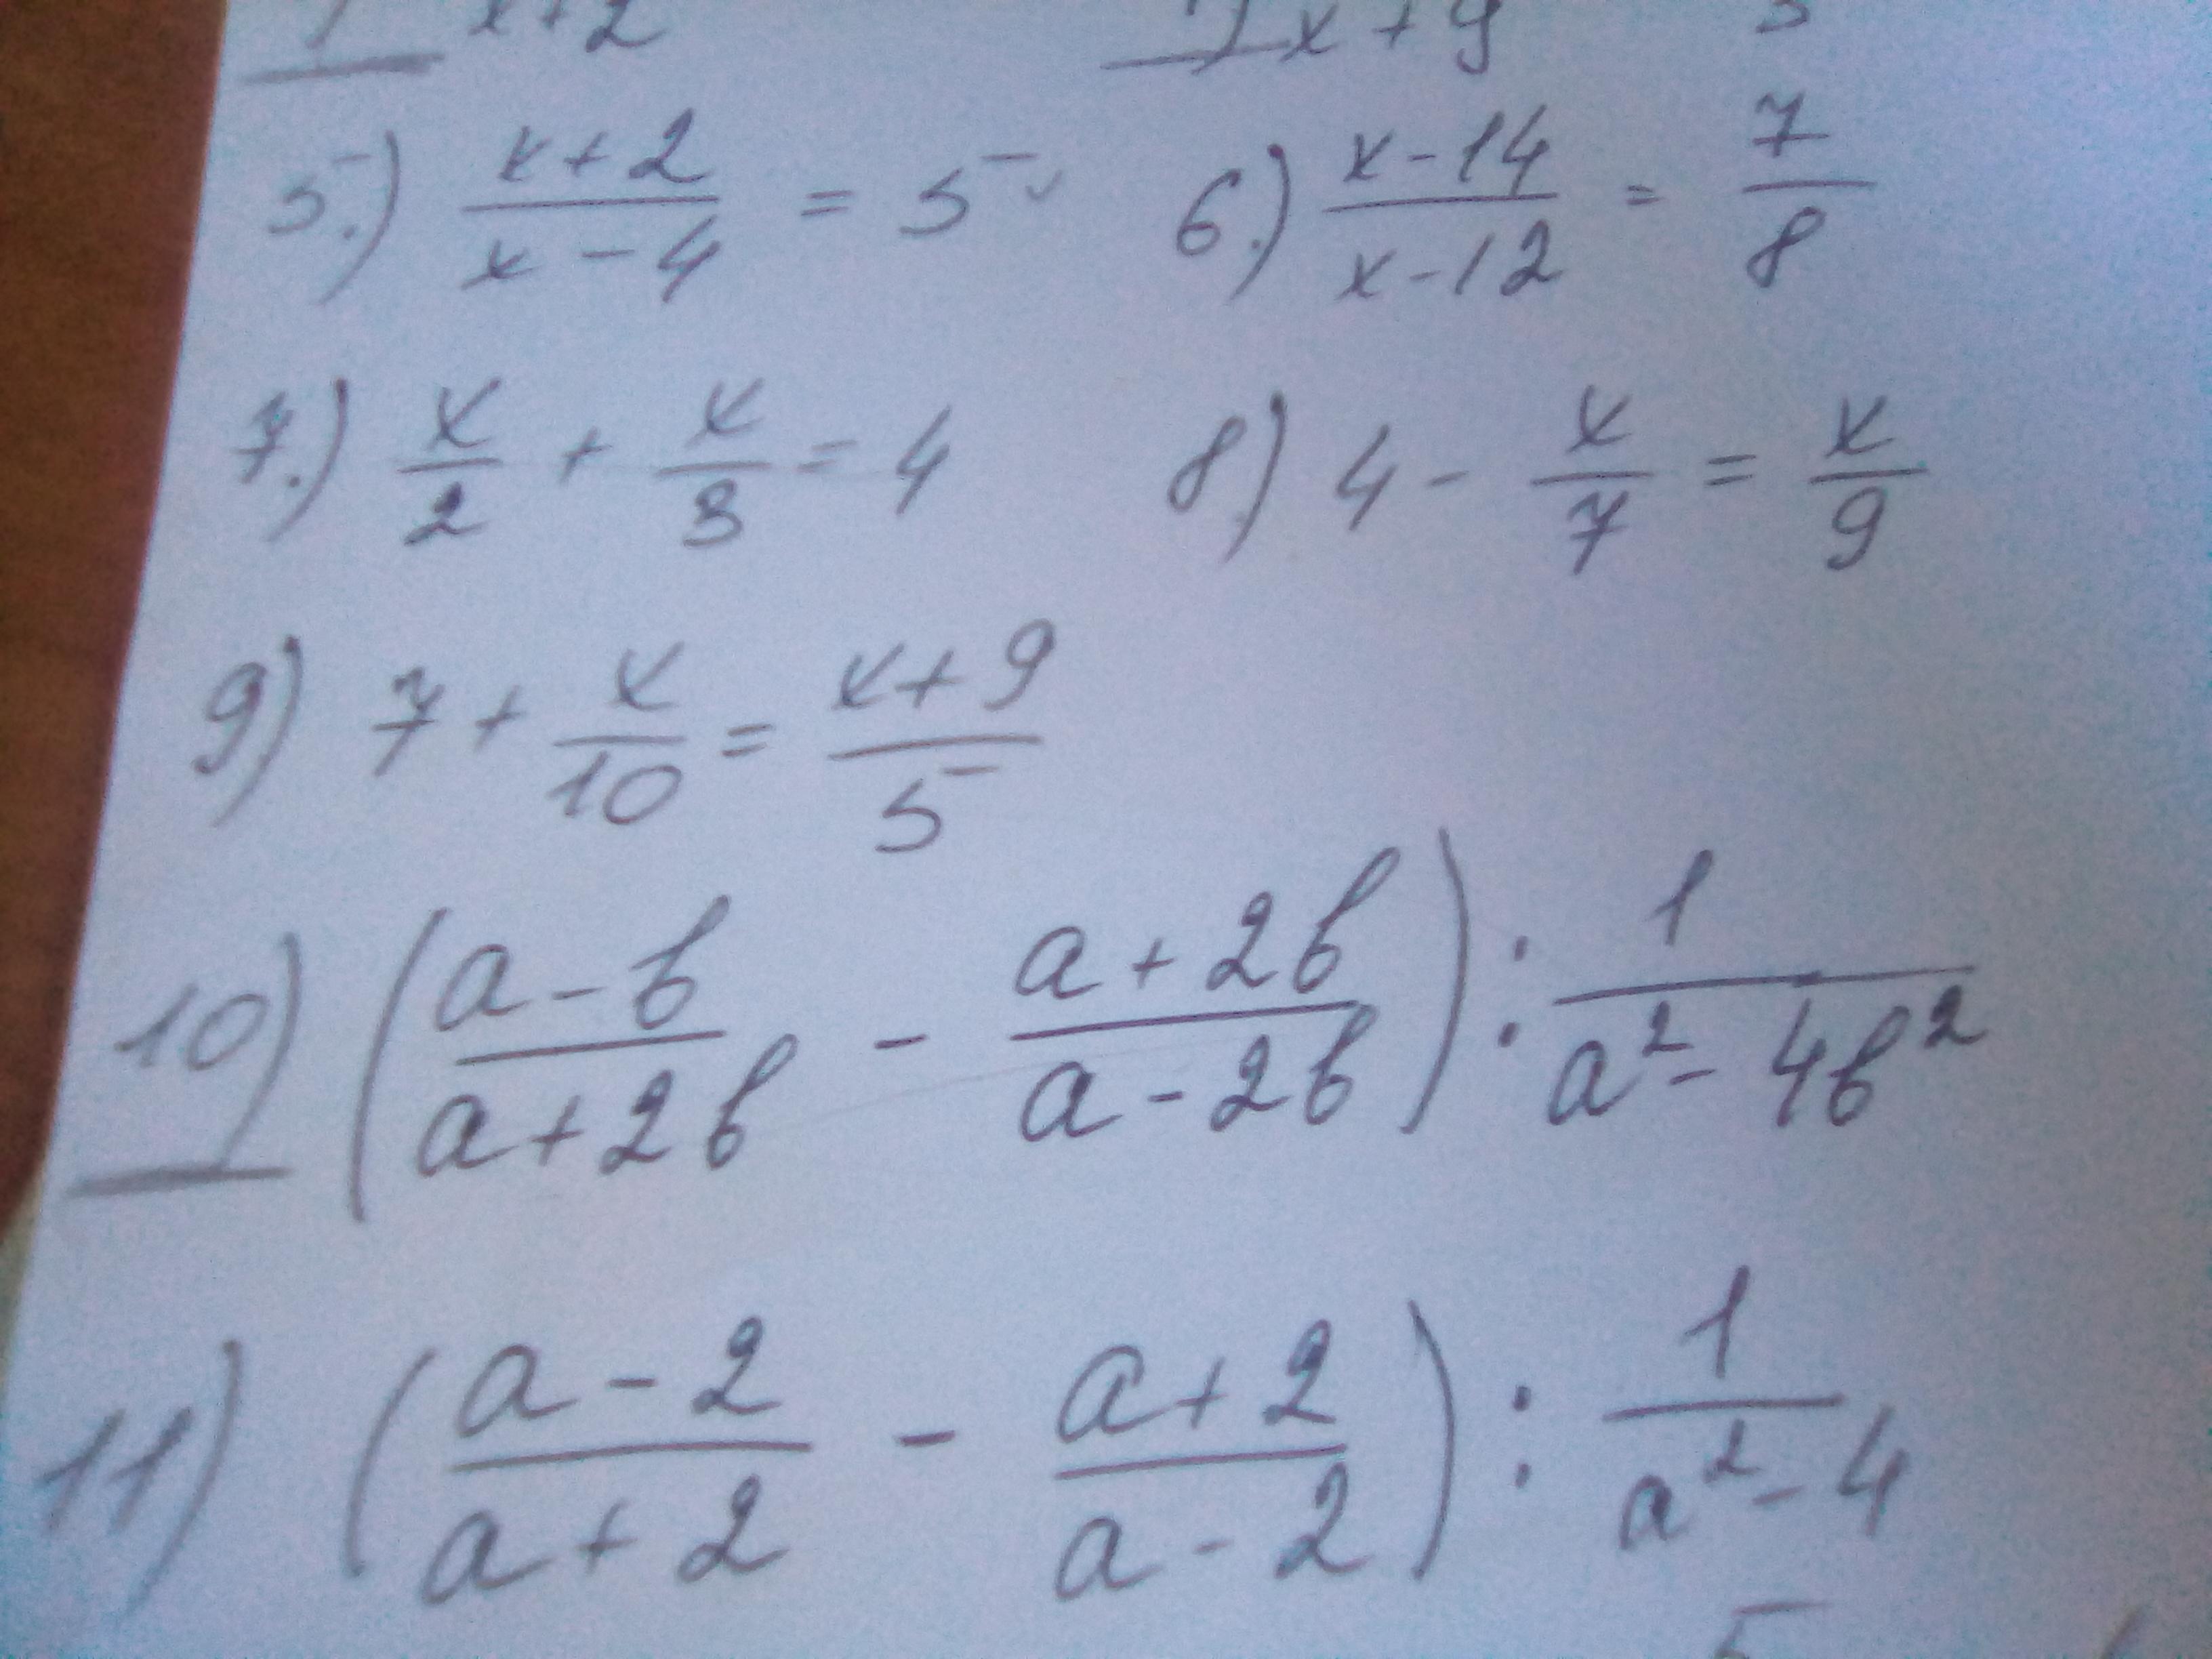 x+2 x+9
5.) (x+2)/(x-4) = 5 6.) (x-14)/(x-12) = 7/8
7.) x/2 + x/3 = 4 8) 4 - x/7 = x/9
9) 7 + x/10 = (x+9)/5
10) ((a-b)/(a+2b) - (a+2b)/(a-2b)) : 1/(a²-4b²)
11) ((a-2)/(a+2) - (a+2)/(a-2)) : 1/(a²-4)